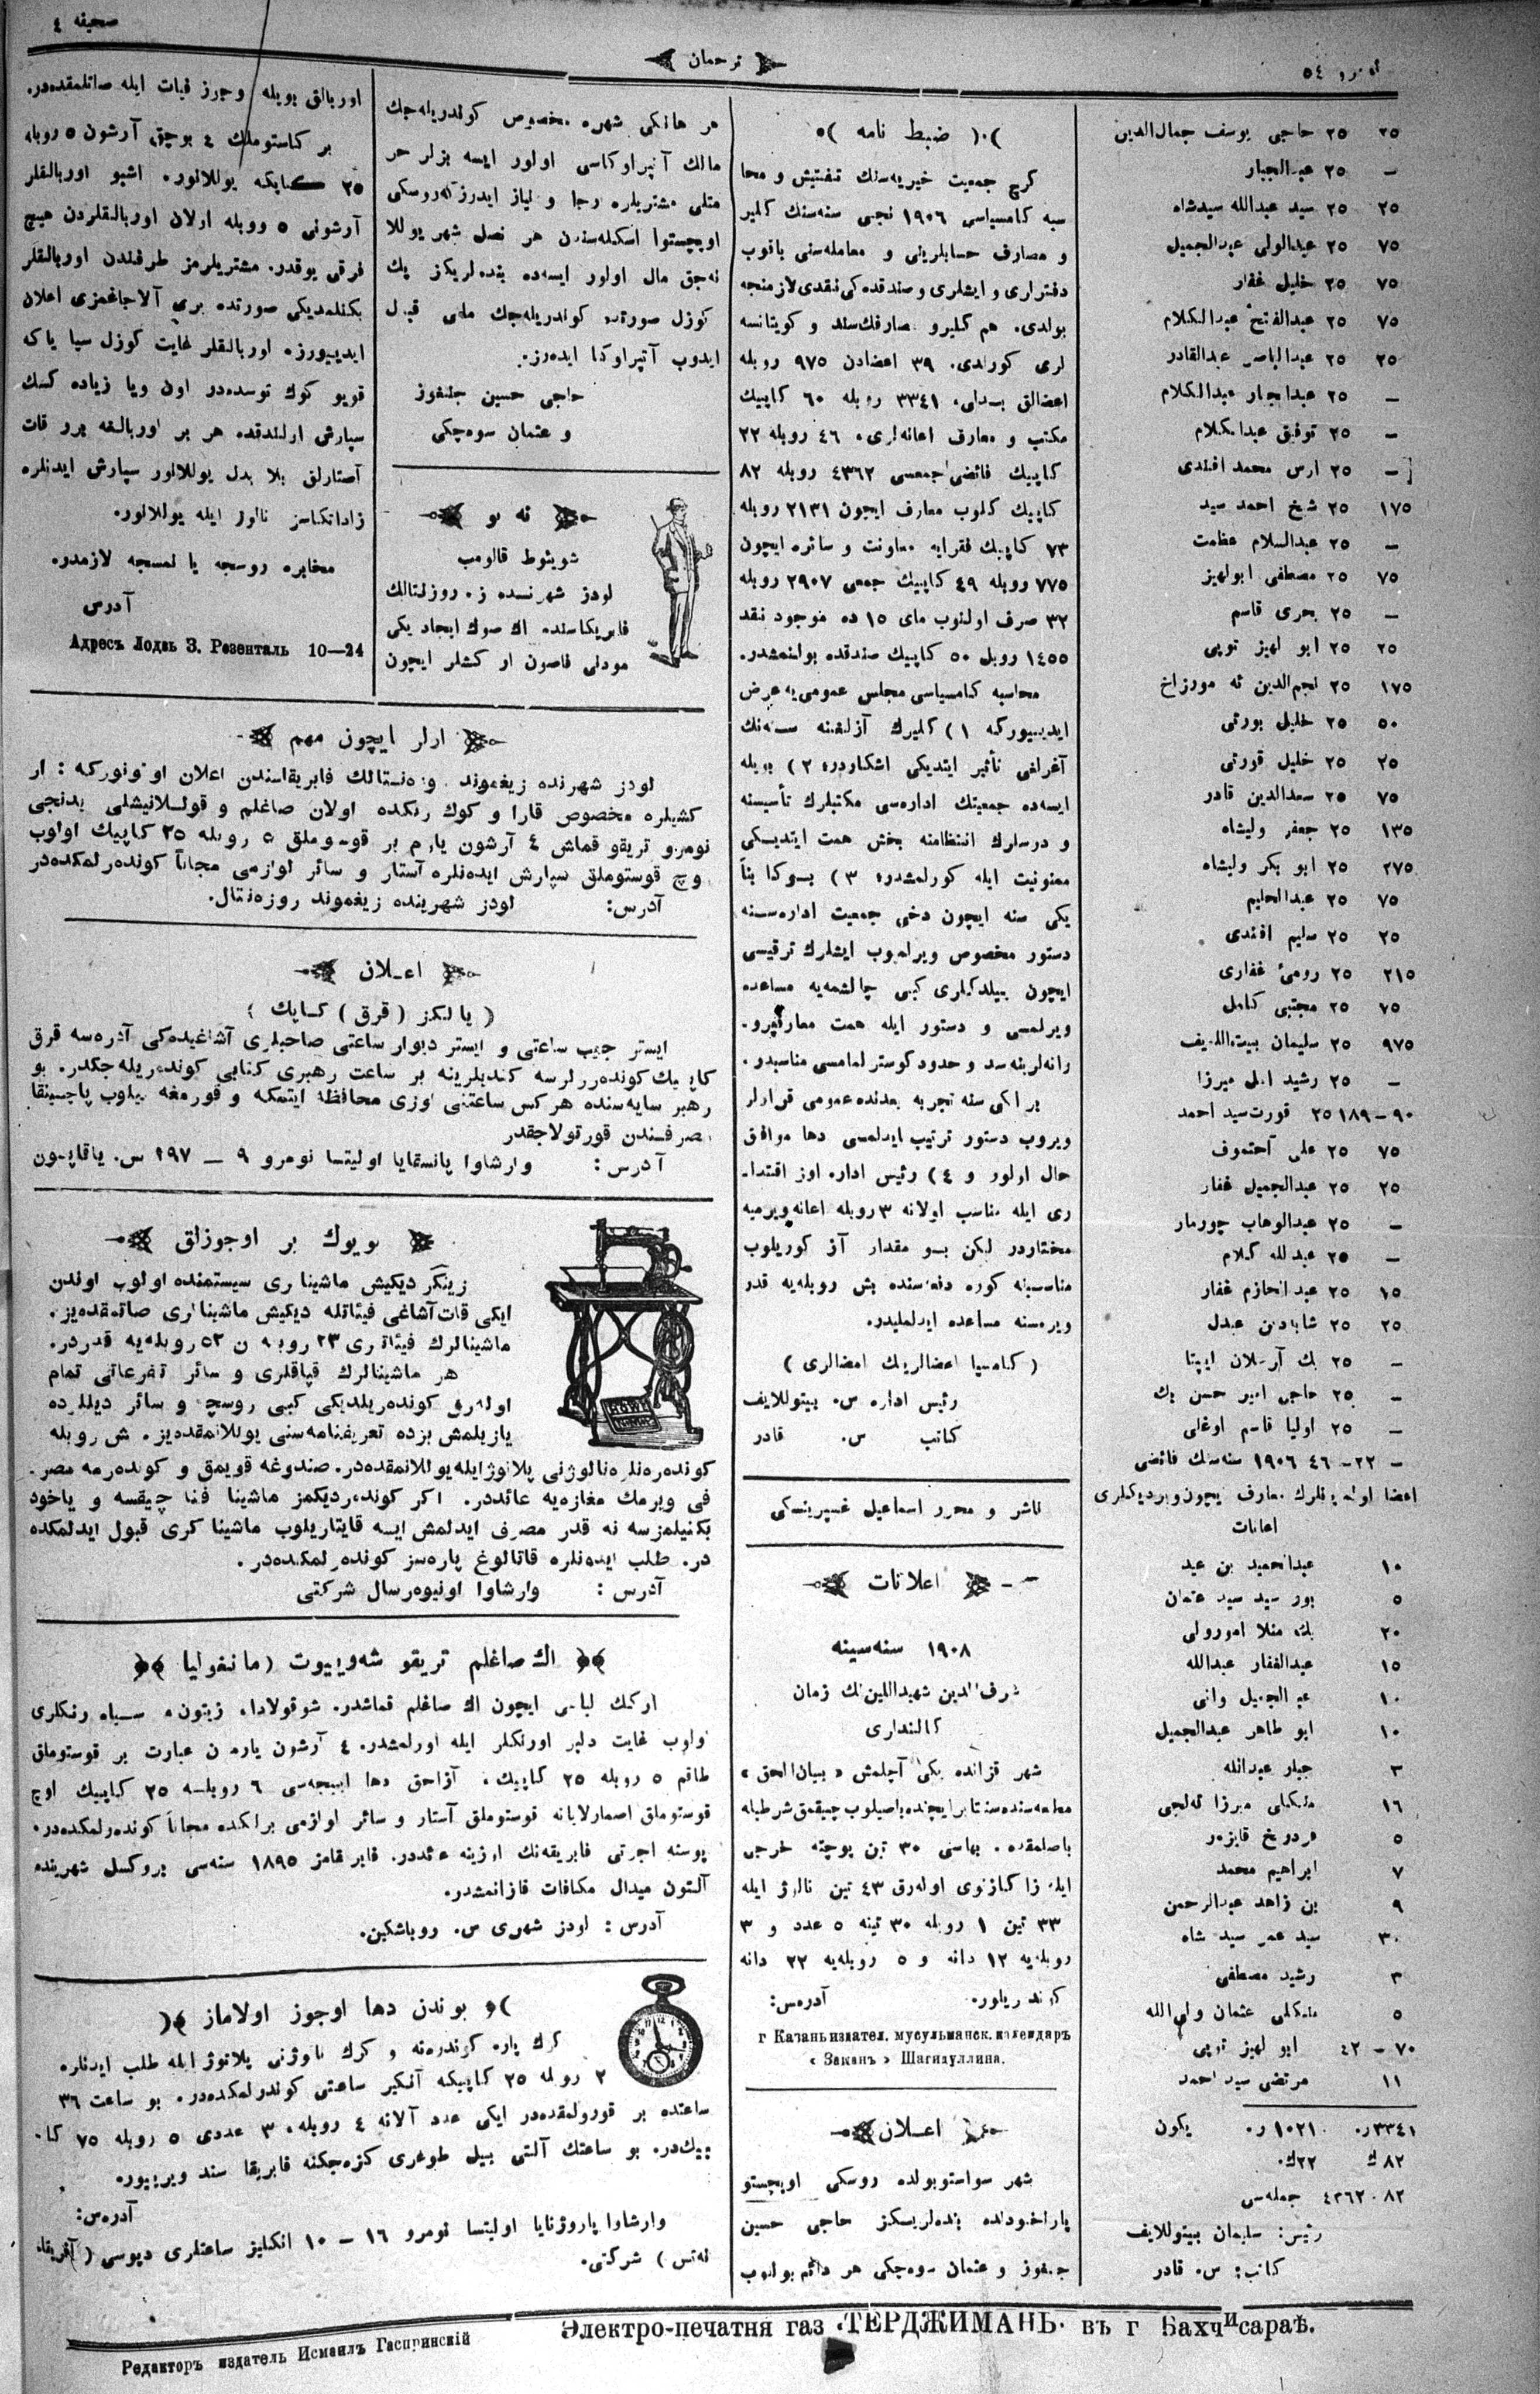 صحیفه ٤
ترجمان
نومرو ٥٤
٢٥ ٢٥ حاجی یوسف جمال‌الدین
— ٢٥ عبدالجبار
٢٥ ٢٥ سید عبدالله سیدشاه
٧٥ ٢٥ عبدالولی عبدالجمیل
٧٥ ٢٥ خلیل غفار
٧٥ ٢٥ عبدالفتح عبدالكلام
٢٥ ٢٥ عبدالناصر عبدالقادر
— ٢٥ عبدالجبار عبدالكلام
— ٢٥ توفیق عبدالكلام
— ٢٥ ارس محمد افندی
١٧٥ ٢٥ شیخ احمد سید
— ٢٥ عبدالسلام عظمت
٧٥ ٢٥ مصطفی ابولهیز
— ٢٥ بحری قاسم
٢٥ ٢٥ ابو لهیز توپی
١٧٥ ٢٥ نجم‌الدین
٥٠ ٢٥ خلیل بورتی
٢٥ ٢٥ خلیل قورتی
٧٥ ٢٥ سعدالدین قادر
١٣٥ ٢٥ جعفر ولیشاه
٢٧٥ ٢٥ ابو بكر ولیشاه
٧٥ ٢٥ عبدالحلیم
٢٥ ٢٥ سلیم افندی
٢١٥ ٢٥ رومئ غفاری
٧٥ ٢٥ مجتبی كامل
٩٧٥ ٢٥ سلیمان بیتوللایف
— ٢٥ رشید میرزا
٩٠—١٨٩ ٢٥ قورت سید احمد
٧٥ ٢٥ علی آحتموف
٢٥ ٢٥ عبدالجمیل غفار
— ٢٥ عبدالوهاب چورمار
— ٢٥ عبدلله كلام
١٥ ٢٥ عبدالحازم غفار
٢٥ ٢٥ شابادین عبدل
— ٢٥ بك آرسلان ایپتا
— ٢٥ حاجی امیر حسن بك
— ٢٥ اولیا قاسم اوغلی
— ٢٢—٤٦ ١٩٠٦ سنه‌سنك فائضی
اعضا اولمیانلرك معارف ایچون ویردیكلری
اعانات
١٠ عبدالحمید بن عبد
٥ بور سید سید عثمان
٢٠ بك منلا امورولی
١٥ عبدالغفار عبدالله
١٠ عبدالجمیل وانی
١٠ ابو طاهر عبدالجمیل
٣ جیلو عبدالله
١٦ میرزا
٥
٧ ابراهیم محمد
٩ بن زاهد عبدالرحمن
٣٠ سید عمر سید شاه
٣ رشید مصطفی
٥ عثمان ولی الله
٧٠ — ٤٢ ابو لهیز توپی
١١ مرتضی سید احمد
٣٣٤١ر. ١٠٢١ ر. یكون
٨٢ك ٢٢ك.
٤٣٦٢.٨٢ جمله‌سی
رئیس: سلیمان بیتوللایف
كاتب: س. قادر
)٠( ضبط نامه )٥
كرچ جمعیت خیریه‌سنك تفتیش و محا
سبه كامسیاسی ١٩٠٦ نجی سنه‌سنك كلیر
و مصارف حسابلرینی و معامله‌سنی باقوب
دفترلری و ایشلری و صندقده‌كی نقدی لازمنجه
بولدی. هم كلیرو مصارفك سند و كویتانسه
لری كورلدی. ٣٩ اعضادن ٩٧٥ روبله
اعضالق بدلی، ٣٣٤١ روبله ٦٠ كاپیك
مكتب و معارف اعانه‌لری، ٤٦ روبله ٢٢
كاپیك فائضی جمعسی ٤٣٦٢ روبله ٨٢
كاپیك كلوب معارف ایچون ٢١٣١ روبله
٧٣ كاپیك فقرایه معاونت و سائره ایچون
٧٧٥ روبله ٤٩ كاپیك جمعی ٢٩٠٧ روبله
٣٢ صرف اولنوب مای ١٥ ده موجود نقد
١٤٥٥ روبل ٥٠ كاپیك صندقده بولنمشدر.
محاسبه كامسیاسی مجلس عمومی‌یه عرض
ایدییوركه ١) كلیرك آزلغنه سنه‌نك
آغرلغی تأثیر ایتدیكی اشكاردر، ٢) بویله
ایسه‌ده جمعیتك اداره‌سی مكتبلرك تأسیسنه
و درسلرك انتظامنه بخش همت ایتدیكی
ممنونیت ایله كورلمشدر، ٣) بوكا بنأ
یكی سنه ایچون دخی جمعیت اداره‌سنه
دستور مخصوص ویرلمیوب ایشلرك ترقیسی
ایچون بیلدكلری كبی چالشمه‌یه مساعده
ویرلمسی و دستور ایله همت معارفپرو.
رانه‌لرینه سد و حدود كوسترلمامسی مناسبدر.
بر ایكی سنه تجربه بعدنده عمومی قرارلر
ویروب دستور ترتیب ایدلمسی دها موافق
حال اولور و ٤) رئیس اداره اوز اقتدا-
ری ایله مناسب اولانه ٣ روبله اعانه ویرمیه
مختاردر لیكن بو مقدار آز كوریلوب
مناسبنه كوره دفعه‌سنده بش روبله‌یه قدر
ویرمسنه مساعده ایدلملیدر.
( كامسیا اعضالرینك امضالری )
رئیس اداره س. بیتوللایف
كاتب س. قادر
ناشر و محرر اسماعیل غسپرینسكی
اعلانات
١٩٠٨ سنه‌سینه
شرف‌الدین شهیداللین‌نك زمان
كالنداری
شهر قزانده یكی آچلمش « بیان‌الحق »
مطبعه‌سنده سنتابر ایچنده باصیلوب چیقمق شرطیله
باصلمقده. بهاسی ٣٠ تین پوچته خرجی
ایله زاكازنوی اوله‌رق ٤٣ تین نالوژ ایله
٣٣ تین ١ روبله ٣٠ تینه ٥ عدد و ٣
روبله‌یه ١٢ دانه و ٥ روبله‌یه ٢٢ دانه
كوندریلور. آدره‌س:
г Казань издател. мусульманск. календарь
« Заманъ » Шагидуллина.
اعلان
شهر سواستوپولده روسكی اوبچستو
پاراخودلده بنده‌لریكز حاجی حسین
جلغوز و عثمان سوه‌چكی هر دائم بولنوب
هر هانكی شهره مخصوص كوندریله‌جك
مالك آتپراوكاسی اولور ایسه بزلر حر
متلی مشتریلره رجا و نیاز ایدرزكه روسكی
اوبچستوا اسكله‌سندن هر نصل شهر یوللا
نه‌جق مال اولور ایسه‌ده بنده‌لریكز پك
كوزل صورتده كوندریله‌جك مالی قبول
ایدوب آتپراوكا ایده‌رز.
حاجی حسین جلغوز
و عثمان سوه‌چكی
نه بو
شویتوط قالومب
لودز شهرنده ز. روزنتالك
فابریكاسنده اك صوك ایجاد یكی
مودلی فاصون ار كشلر ایچون
اوربالق بویله وچرز فیات ایله صاتلمقده‌در.
بر كاستوملك ٤ بوچق آرشون ٥ روبله
٢٥ كاپیكه یوللانور. اشبو اوربالقلر
آرشونی ٥ روبله اولان اوربالقلردن هیچ
فرقی یوقدر. مشتریلرمز طرفندن اوربالقلر
بكنلمدیكی صورتده بری آلاجاغمزی اعلان
ایدییورز. اوربالقلر غایت كوزل سیا یاكه
قویو كوك توسده‌در اون ویا زیاده كسك
سپارش ارلندقده هر بر اوربالغه برر قات
آستارلق بلا بدل یوللانور سپارش ایدنلره
زاداتكاسز نالوژ ایله یوللانور.
مخابره روسجه یا لمسجه لازمدر.
آدرس
Адресъ Лодзь З. Розенталь 10—24
ارلر ایچون مهم
لودز شهرنده زیغموند روزه‌نستالك فابریقاسندن اعلان اوتونوركه: ار
كشیلره مخصوص قارا و كوك رنكده اولان صاغلم و قوللانیشلی بدنجی
نومرو تریقو قماش ٤ آرشون یارم بر قوستوملق ٥ روبله ٢٥ كاپیك اولوب
اوچ قوستوملق سپارش ایدەنلره آستار و سائر لوازمی مجاناً كونده‌رلمكده‌در
آدرس: لودز شهرینده زیغموند روزه‌نتال.
اعلان
( یالكز (قرق) كاپك )
ایستر جیب ساعتی و ایستر دیوار ساعتی صاحبلری آشاغیده‌كی آدره‌سه قرق
كاپیك كونده‌ررلرسه كندیلرینه بر ساعت رهبری كتابی كونده‌ریله‌جكدر. بو
رهبر سایه‌سنده هر كس ساعتنی اوزی محافظه ایتمكه و قورمغه بیلوب پاچسینقا
مصرفندن قورتولاجقدر
آدرس: وارشاوا پانسقایا اولیتسا نومرو ٩ — ١٩٧ س. یاقابسون
بویوك بر اوجوزلق
زینگر دیكیش ماشینالری سیستمنده اولوب اوندن
ایكی قات آشاغی فیئاتله دیكیش ماشینالری صاتمقده‌یز.
ماشینالرك فیئاتلری ٢٣ روبله‌دن ٥٢ روبله‌یه قدردر.
هر ماشینالرك قپاقلری و سائر تفرعاتی تمام
اوله‌رق كونده‌ریلدیكی كبی روسچه و سائر دیللرده
یازیلمش بزده تعریفنامه‌سنی یوللانمقده‌یز. بش روبله
كونده‌ره‌نلره نالوژنی پلاتوژ ایله یوللانمقده‌در. صندوغه قویمق و كونده‌رمه مصر-
فی ویرمك مغازه‌یه عائددر. اكر كونده‌ردیكمز ماشینا فنا چیقسه و یاخود
بكنیلمزسه نه قدر مصرف ایدلمش ایسه قایتاریلوب ماشینا كری قبول ایدلمكده
در. طلب ایدەنلره قاتالوغ پاره‌سز كونده‌رلمكده‌در.
آدرس: وارشاوا اونیوه‌رسال شركتی
اك صاغلم تریقو شه‌ویوت (مانغولیا)
اركك لباسی ایچون اك صاغلم قماشدر. شوقولادا، زیتون، سیاه رنكلری
اولوب غایت دلبر اورنكلر ایله اورلمشدر. ٤ آرشون یارمدن عبارت بر قوستوملق
طاقم ٥ روبله ٢٥ كاپیك، آزاجق دها اینجه‌سی ٦ روبله ٢٥ كاپیك اوچ
قوستوملق اصمارلایانه قوستوملق آستار و سائر لوازمی برلكده مجاناً كونده‌رلمكده‌در.
پوسته اجرتی فابریقه‌نك اوزینه عئددر. فابریقامز ١٨٩٥ سنه‌سی بروكسل شهرینده
آلتون میدال مكافات قازانمشدر.
آدرس: لودز شهری س. روباشكین.
بوندن دها اوجوز اولاماز
كرك پاره كوندرەنه و كرك ناوژنی پلاتوژ ایله طلب ایدنلره
٢ روبله ٢٥ كاپیكه آنكیر ساعتی كوندرلمكده‌در. بو ساعت ٣٦
ساعتده بر قورولمقده‌در ایكی عدد آلانه ٤ روبله، ٣ عددی ٥ روبله ٧٥ كا.
پیك‌در. بو ساعتك آلتی ییل طوغری كزه‌جكنه فابریقا سند ویرییور.
آدره‌س:
وارشاوا پاروژنایا اولیتسا نومرو ١٦ — ١٠ انكلیز ساعتلری دپوسی (آفریقا
له‌تس) شركتی.
Электро-печатня газ „ТЕРДЖИМАНЪ“ въ г Бахчисараѣ.
Редакторъ издатель Исмаилъ Гаспринскій